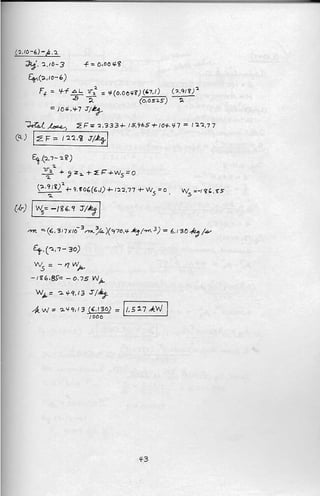 (2.10-6)-p.2
Fig. 2.10-3    f = 0.0048
Eq.(2.10-6)
F_f = 4f ΔL/D v₂²/2 = 4(0.0048)(67.1)/(0.0525) (2.918)²/2
= 106.47 J/kg
Total losses, ΣF = 2.333 + 13.965 + 106.47 = 122.77
(a.) ΣF = 122.8 J/kg
Eq (2.7-28)
v₂²/2 + gz₂ + ΣF + W_S = 0
(2.918)²/2 + 9.806(6.1) + 122.77 + W_S = 0    W_S = -186.85
(b) W_S = -186.9 J/kg
m = (6.317x10⁻³ m³/s)(970.4 kg/m³) = 6.130 kg/s
Eq.(2.7-30)
W_S = -η W_p
-186.85 = -0.75 W_p
W_p = 249.13 J/kg
kW = 249.13 (6.130)/1000 = 1.527 kW
43